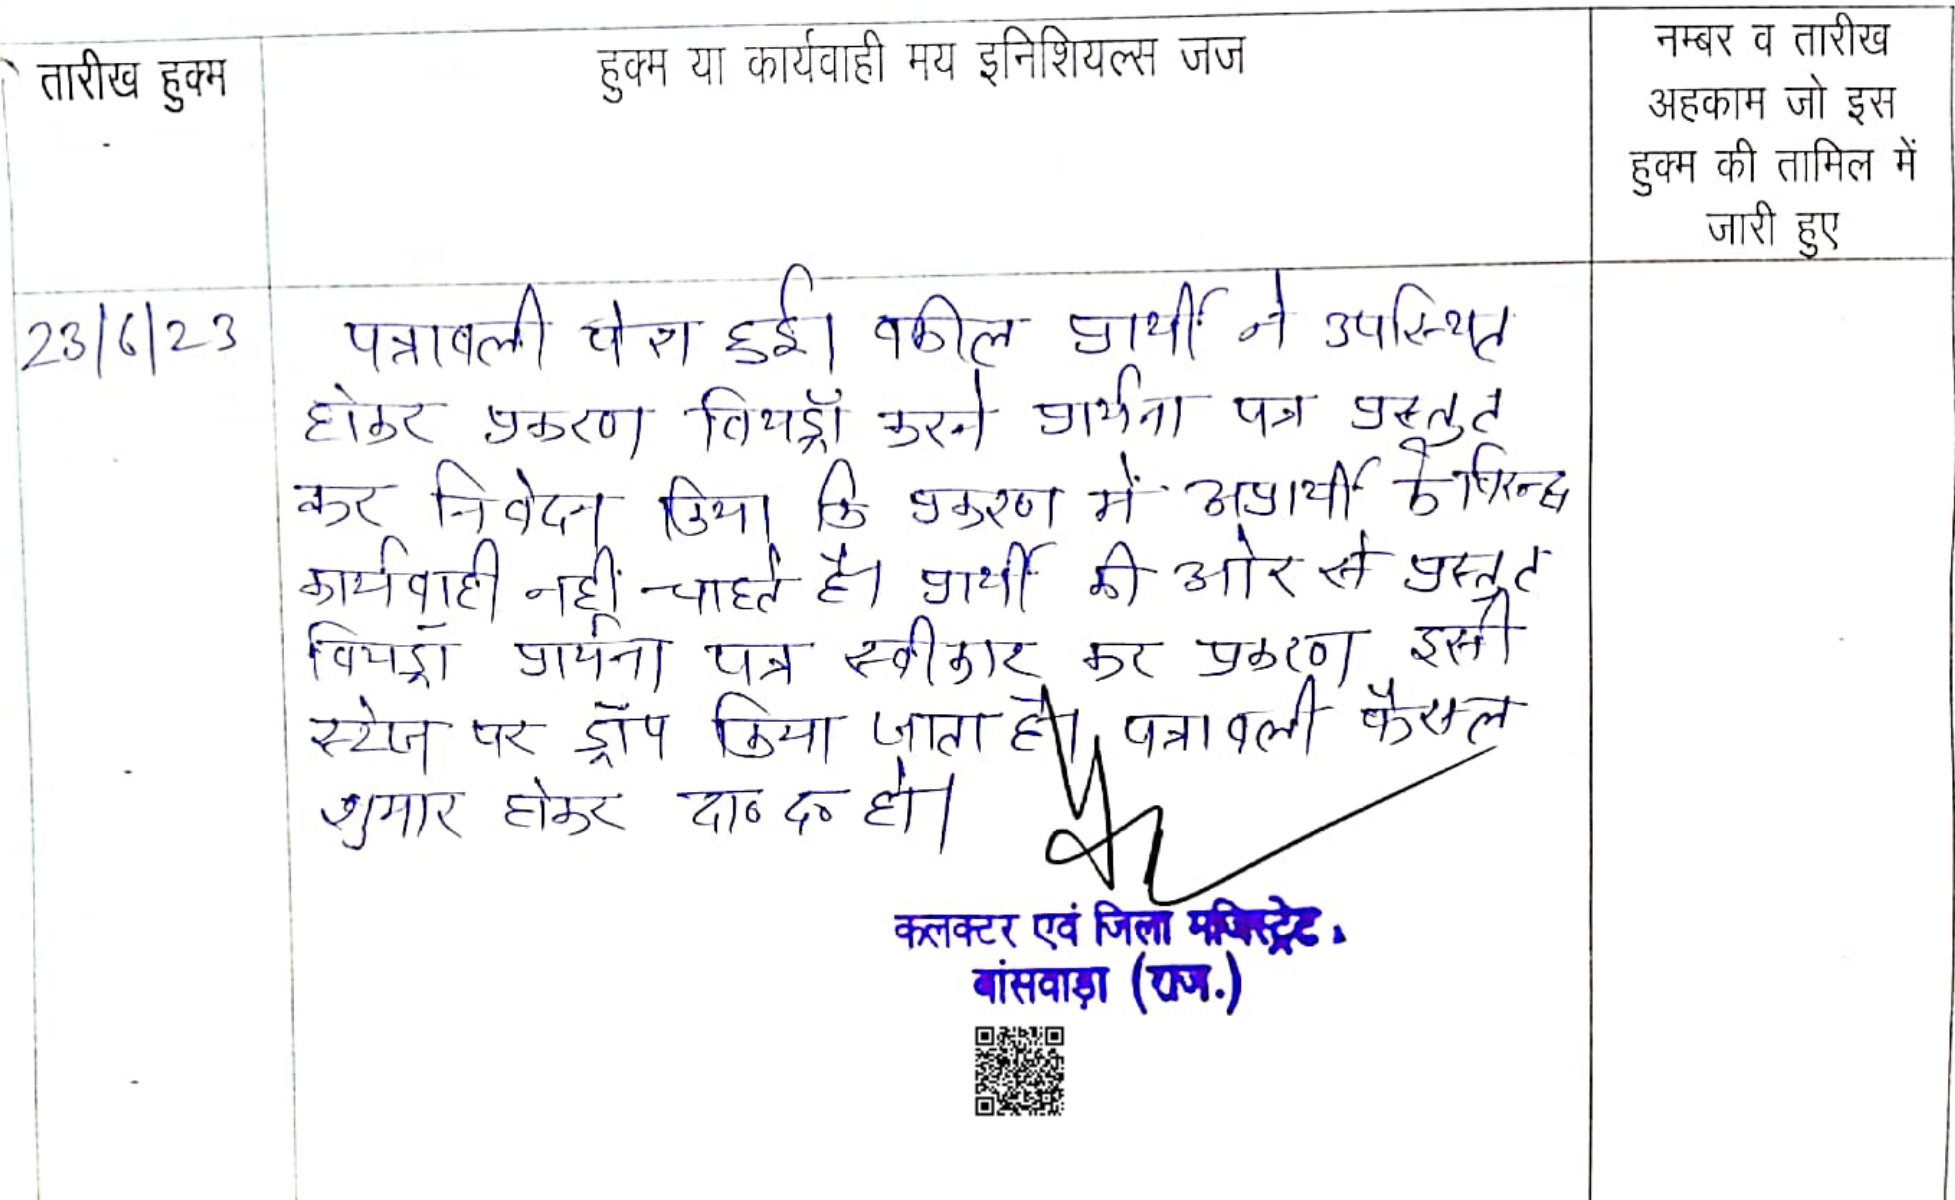 तारीख हुक्म
हुक्म या कार्यवाही मय इनिशियल्स जज
नम्बर व तारीख
अहकाम जो इस
हुक्म की तामिल में
जारी हुए
23/6/23
पत्रावली पेश हुई। वकील प्रार्थी ने उपस्थित
होकर प्रकरण विथड्रॉ करने प्रार्थना पत्र प्रस्तुत
कर निवेदन किया कि प्रकरण में अप्रार्थी के विरुद्ध
कार्यवाही नहीं चाहते है। प्रार्थी की ओर से प्रस्तुत
विथड्रॉ प्रार्थना पत्र स्वीकार कर प्रकरण इसी
स्टेज पर ड्रॉप किया जाता है। पत्रावली फैसल
शुमार होकर दा० द० हो।
कलक्टर एवं जिला मजिस्ट्रेट
बांसवाड़ा (राज.)